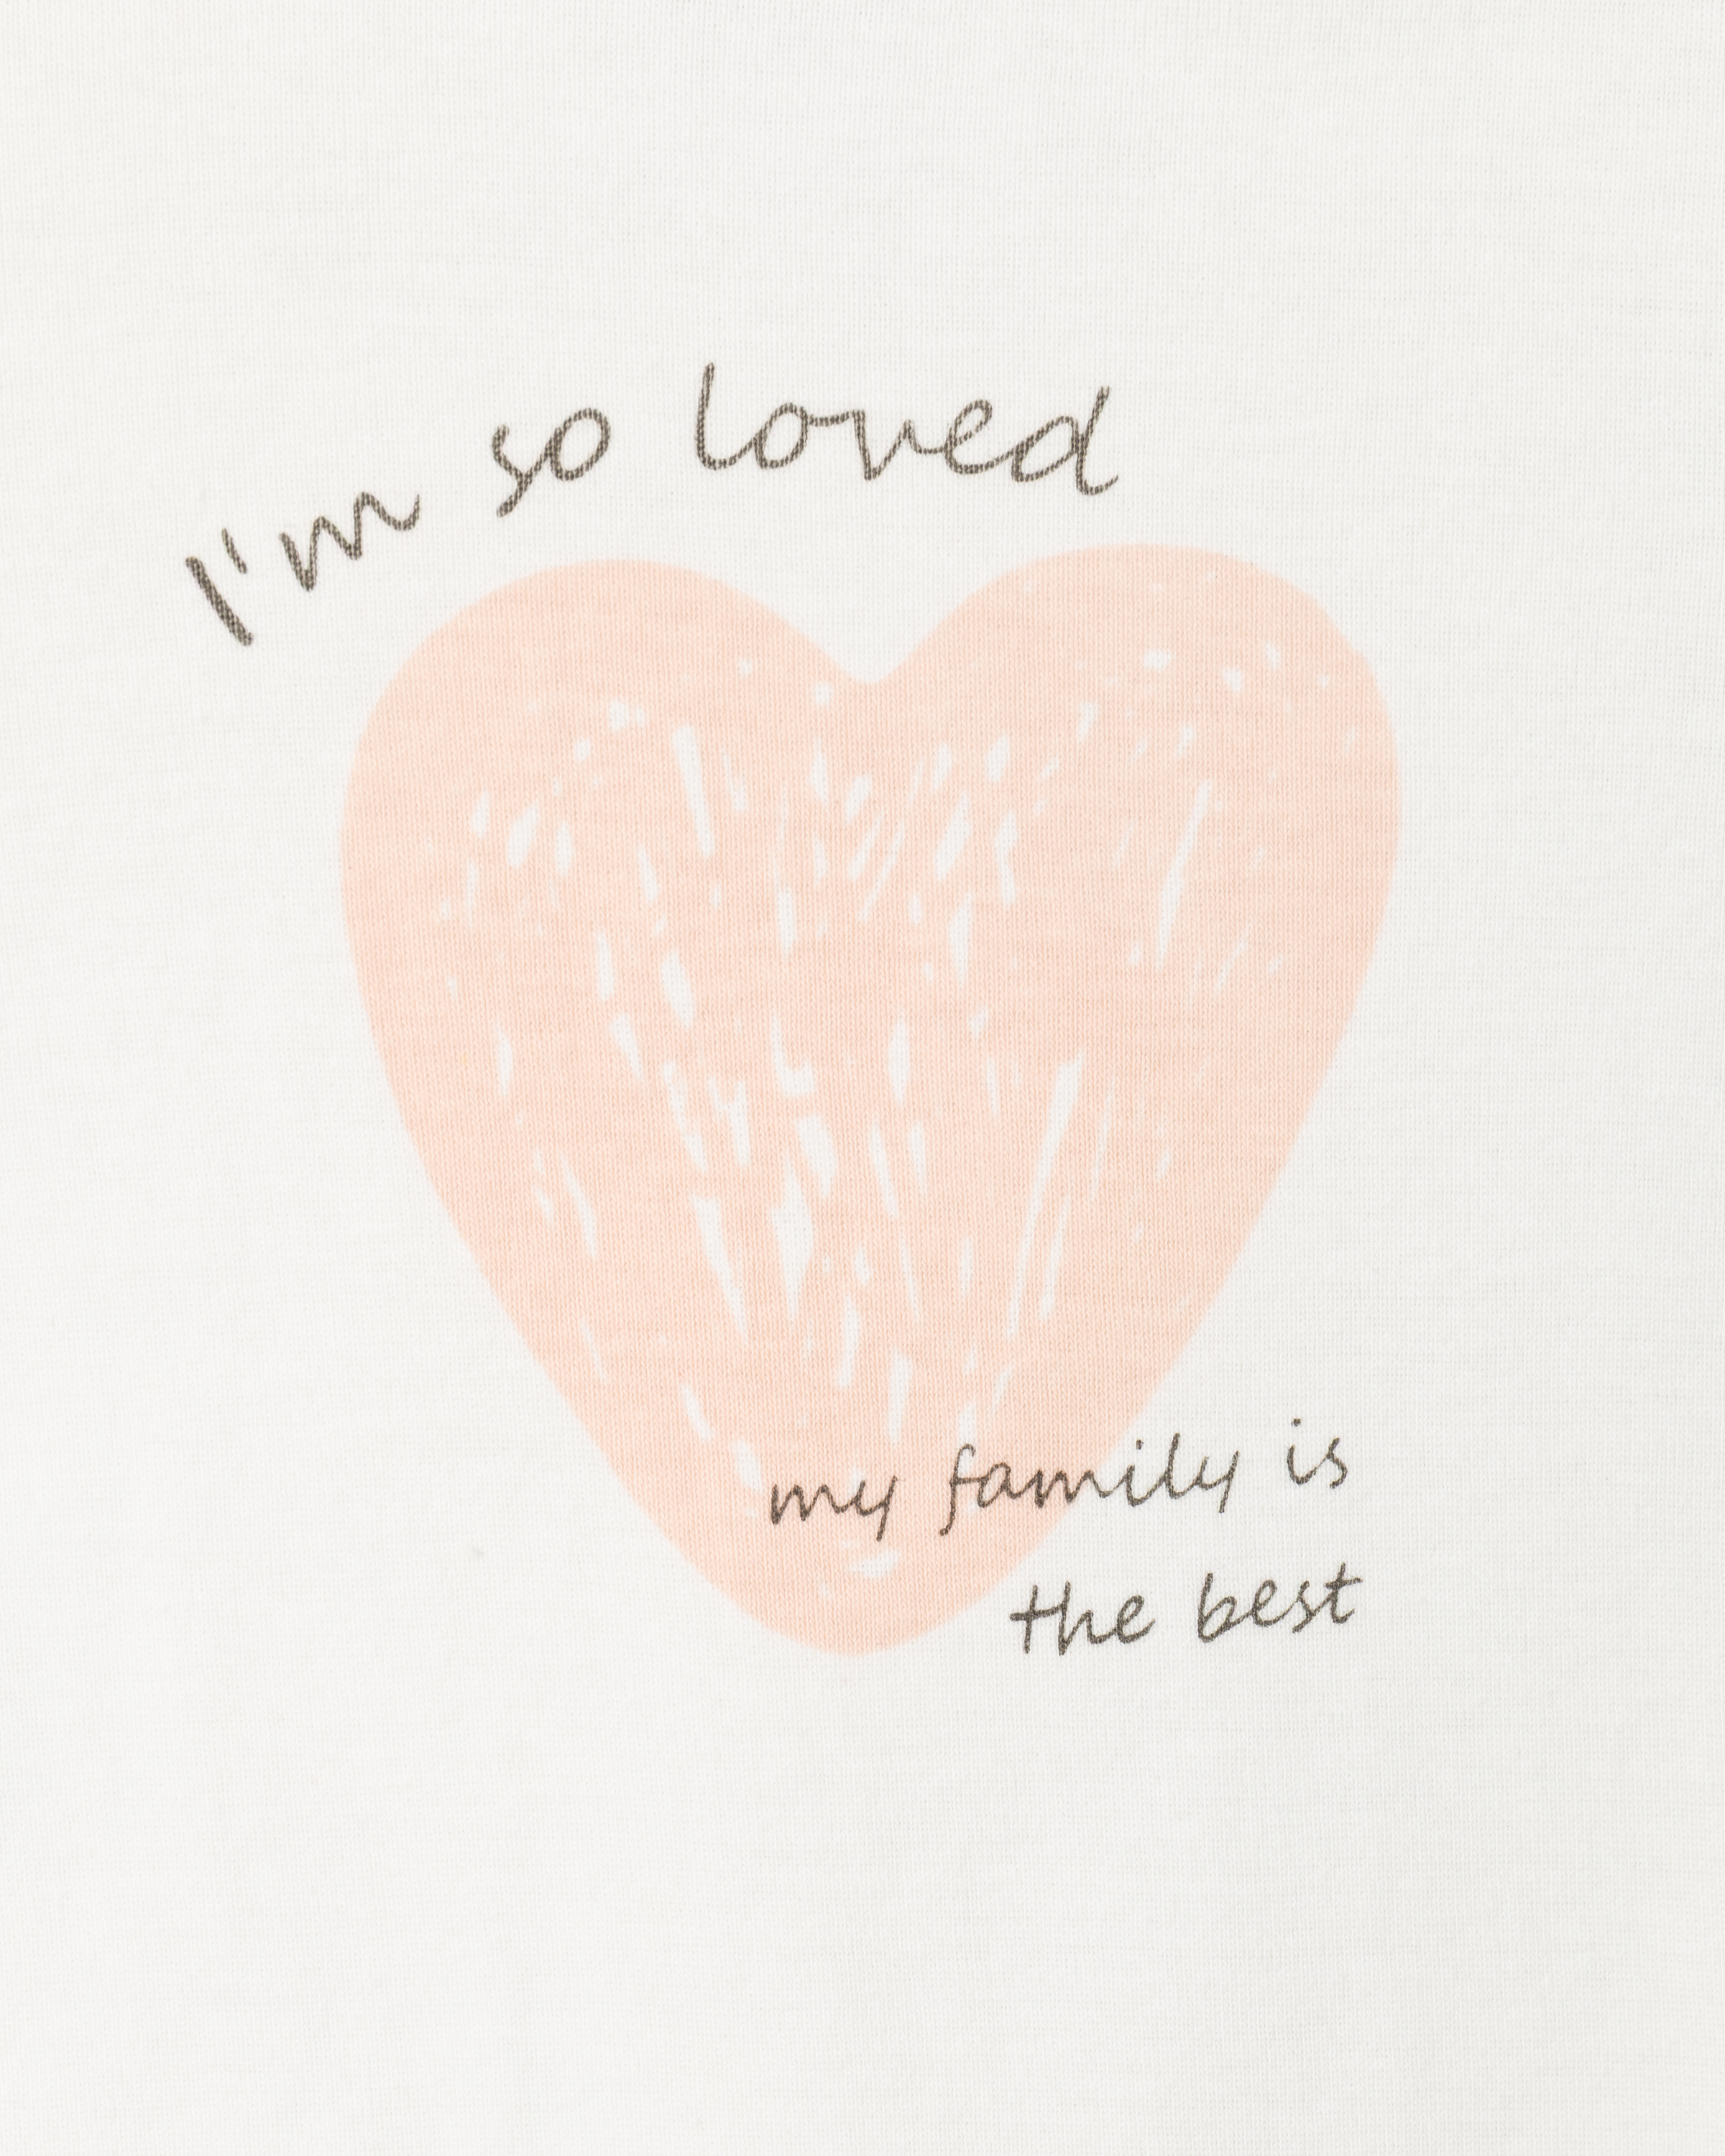 I'm so loved
my family is
the best